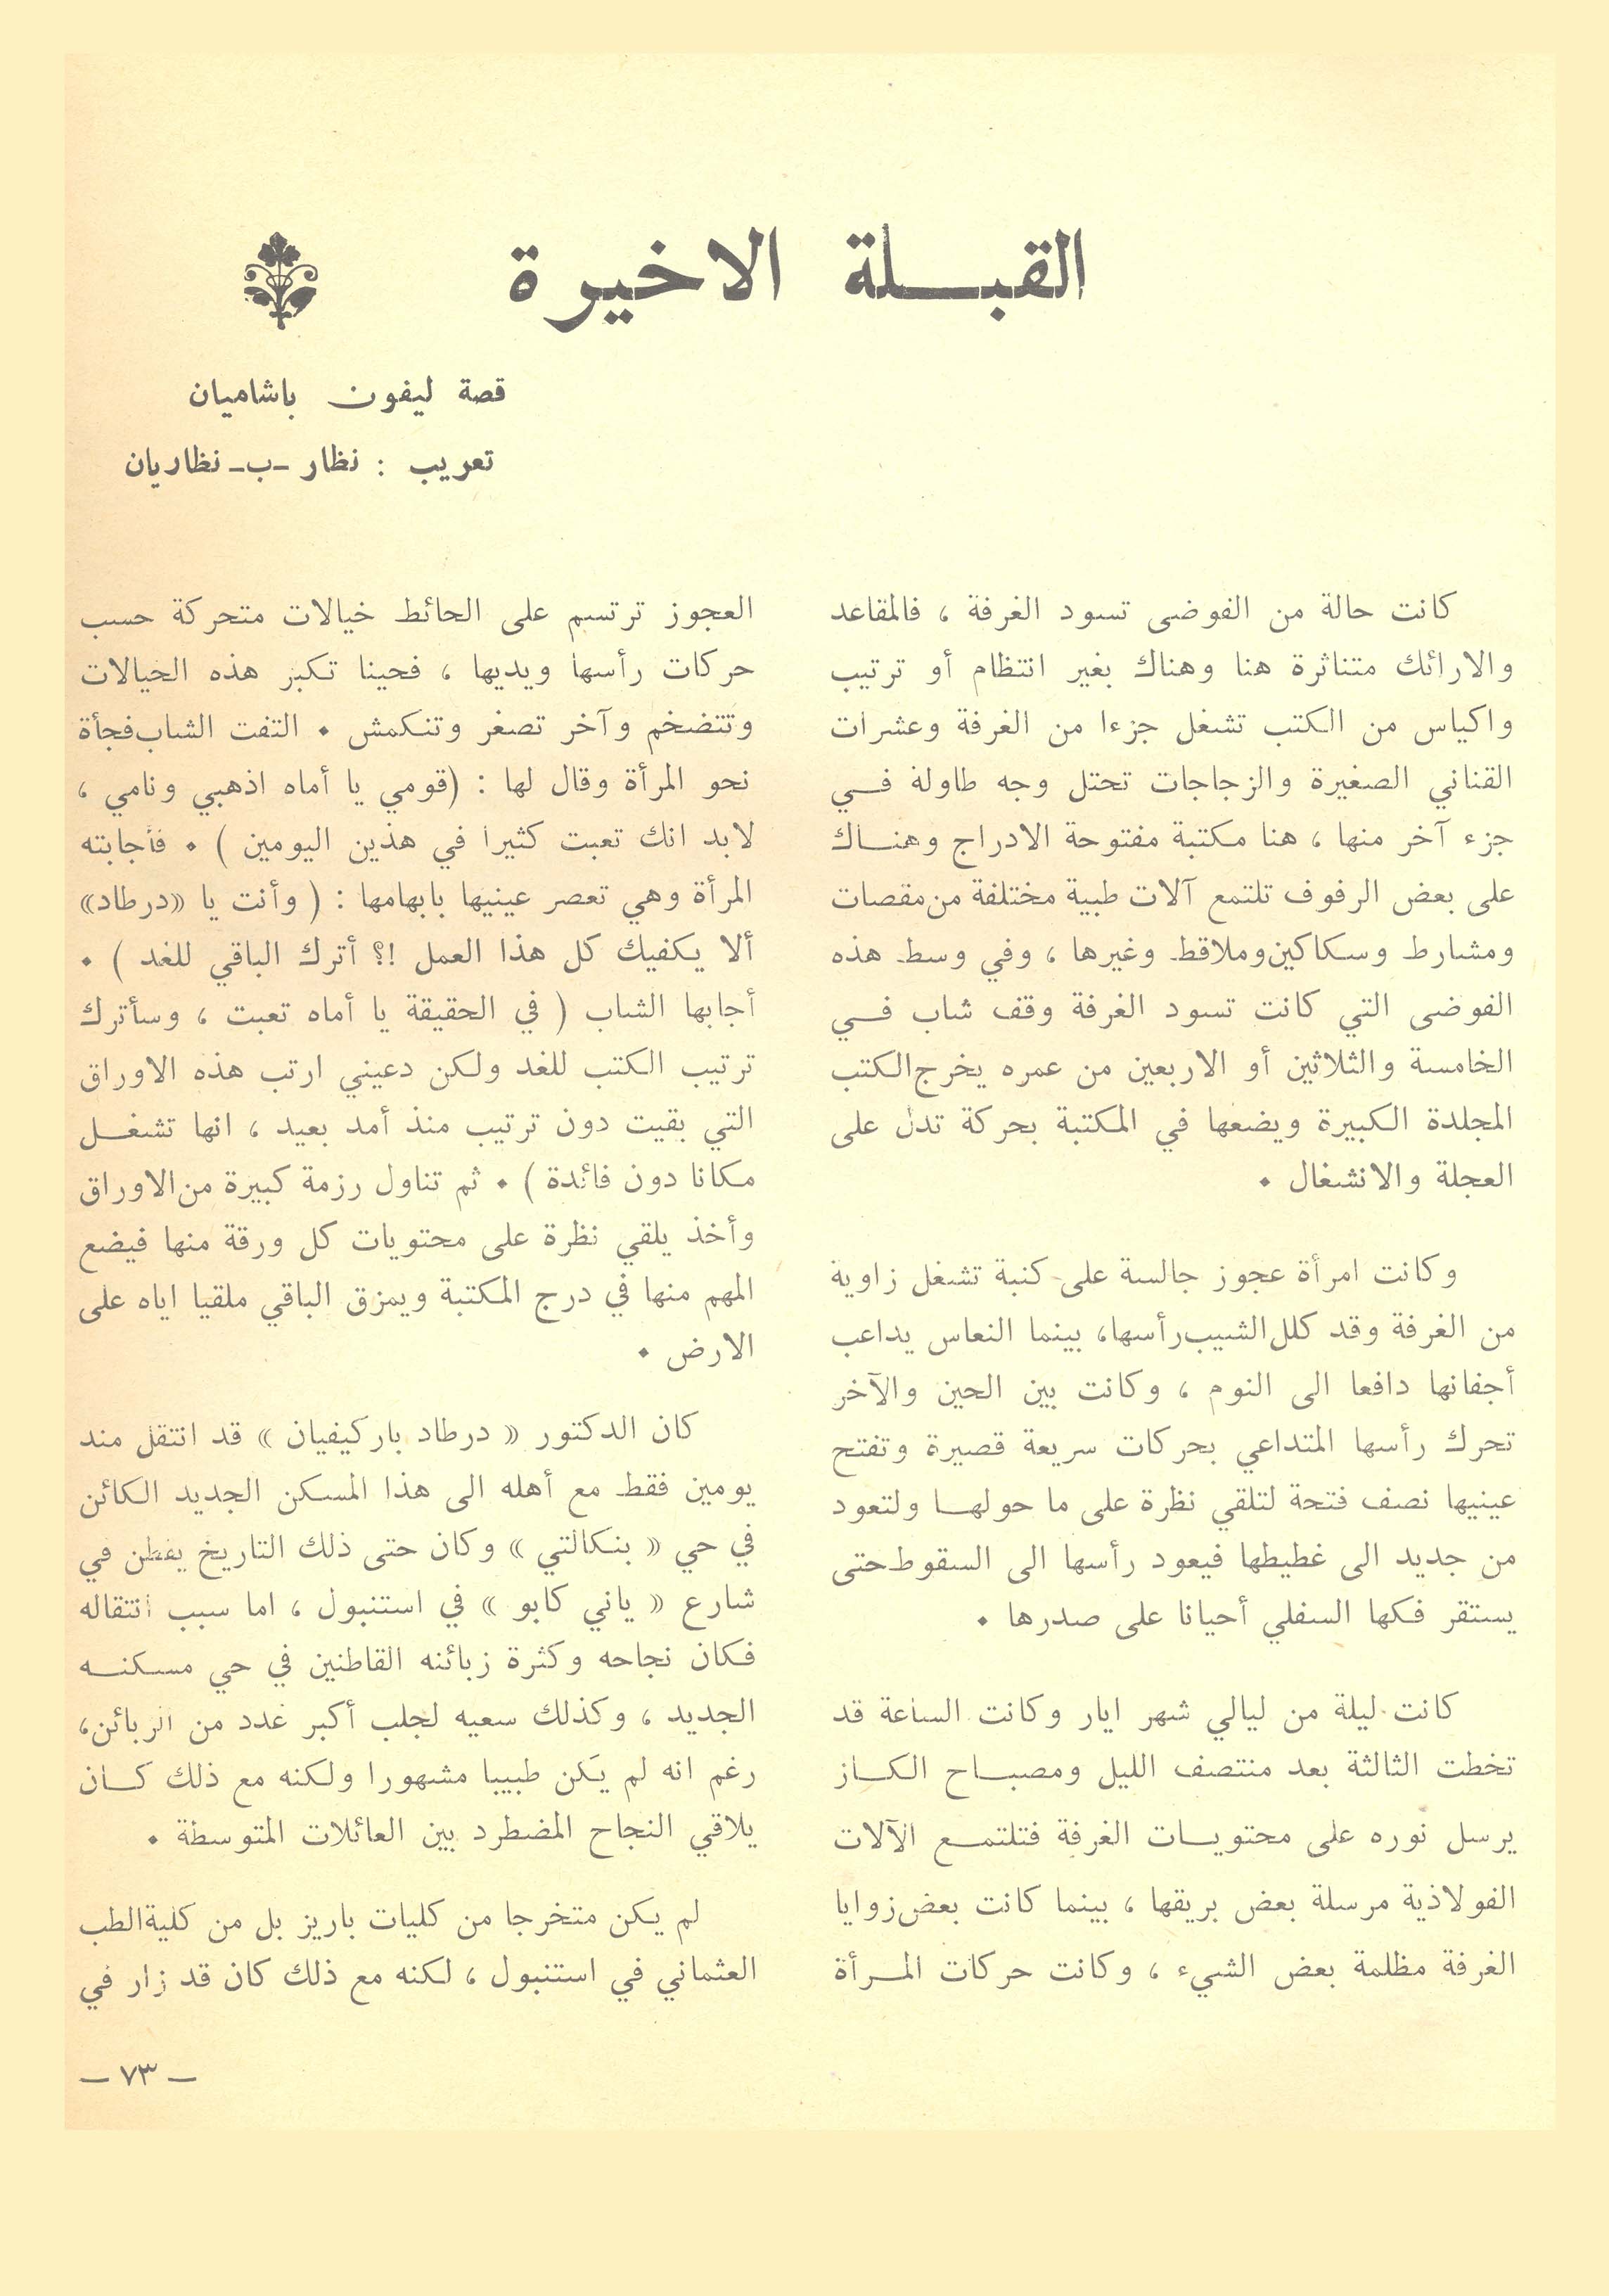 القبـــلة الاخيرة
قصة ليفون باشاميان
تعريب : نظار -ب- نظاريان
كانت حالة من الفوضى تسود الغرفة ، فالمقاعد
والارائك متناثرة هنا وهناك بغير انتظام أو ترتيب
واكياس من الكتب تشغل جزءا من الغرفة وعشرات
القناني الصغيرة والزجاجات تحتل وجه طاولة فـــي
جزء آخر منها ، هنا مكتبة مفتوحة الادراج وهنـــاك
على بعض الرفوف تلتمع آلات طبية مختلفة من مقصات
ومشارط وسكاكين وملاقط وغيرها ، وفي وسط هذه
الفوضى التي كانت تسود الغرفة وقف شاب فـــي
الخامسة والثلاثين أو الاربعين من عمره يخرج الكتب
المجلدة الكبيرة ويضعها في المكتبة بحركة تدل على
العجلة والانشغال •
وكانت امرأة عجوز جالسة على كنبة تشغل زاوية
من الغرفة وقد كلل الشيب رأسها، بينما النعاس يداعب
أجفانها دافعا الى النوم ، وكانت بين الحين والآخر
تحرك رأسها المتداعي بحركات سريعة قصيرة وتفتح
عينيها نصف فتحة لتلقي نظرة على ما حولهـــا ولتعود
من جديد الى غطيطها فيعود رأسها الى السقوط حتى
يستقر فكها السفلي أحيانا على صدرها •
كانت ليلة من ليالي شهر ايار وكانت الساعة قد
تخطت الثالثة بعد منتصف الليل ومصبـــاح الكـــاز
يرسل نوره على محتويـــات الغرفة فتلتمـــع الآلات
الفولاذية مرسلة بعض بريقها ، بينما كانت بعض زوايا
الغرفة مظلمة بعض الشيء ، وكانت حركات المـــرأة
العجوز ترتسم على الحائط خيالات متحركة حسب
حركات رأسها ويديها ، فحينا تكبر هذه الخيالات
وتتضخم وآخر تصغر وتنكمش • التفت الشاب فجأة
نحو المرأة وقال لها : (قومي يا أماه اذهبي ونامي ،
لابد انك تعبت كثيرا في هذين اليومين ) • فأجابته
المرأة وهي تعصر عينيها بابهامها : ( وأنت يا «درطاد»
ألا يكفيك كل هذا العمل !؟ أترك الباقي للغد ) •
أجابها الشاب ( في الحقيقة يا أماه تعبت ، وسأترك
ترتيب الكتب للغد ولكن دعيني ارتب هذه الاوراق
التي بقيت دون ترتيب منذ أمد بعيد ، انها تشغـــل
مكانا دون فائدة ) • ثم تناول رزمة كبيرة من الاوراق
وأخذ يلقي نظرة على محتويات كل ورقة منها فيضع
المهم منها في درج المكتبة ويمزق الباقي ملقيا اياه على
الارض •
كان الدكتور « درطاد باركيفيان » قد انتقل مند
يومين فقط مع أهله الى هذا المسكن الجديد الكائن
في حي « بنكالتي » وكان حتى ذلك التاريخ يقطن في
شارع « ياني كابو » في استنبول ، اما سبب انتقاله
فكان نجاحه وكثرة زبائنه القاطنين في حي مسكنـــه
الجديد ، وكذلك سعيه لجلب أكبر عدد من الزبائن،
رغم انه لم يكن طبيبا مشهورا ولكنه مع ذلك كـــان
يلاقي النجاح المضطرد بين العائلات المتوسطة •
لم يكن متخرجا من كليات باريز بل من كلية الطب
العثماني في استنبول ، لكنه مع ذلك كان قد زار في
— ٧٣ —